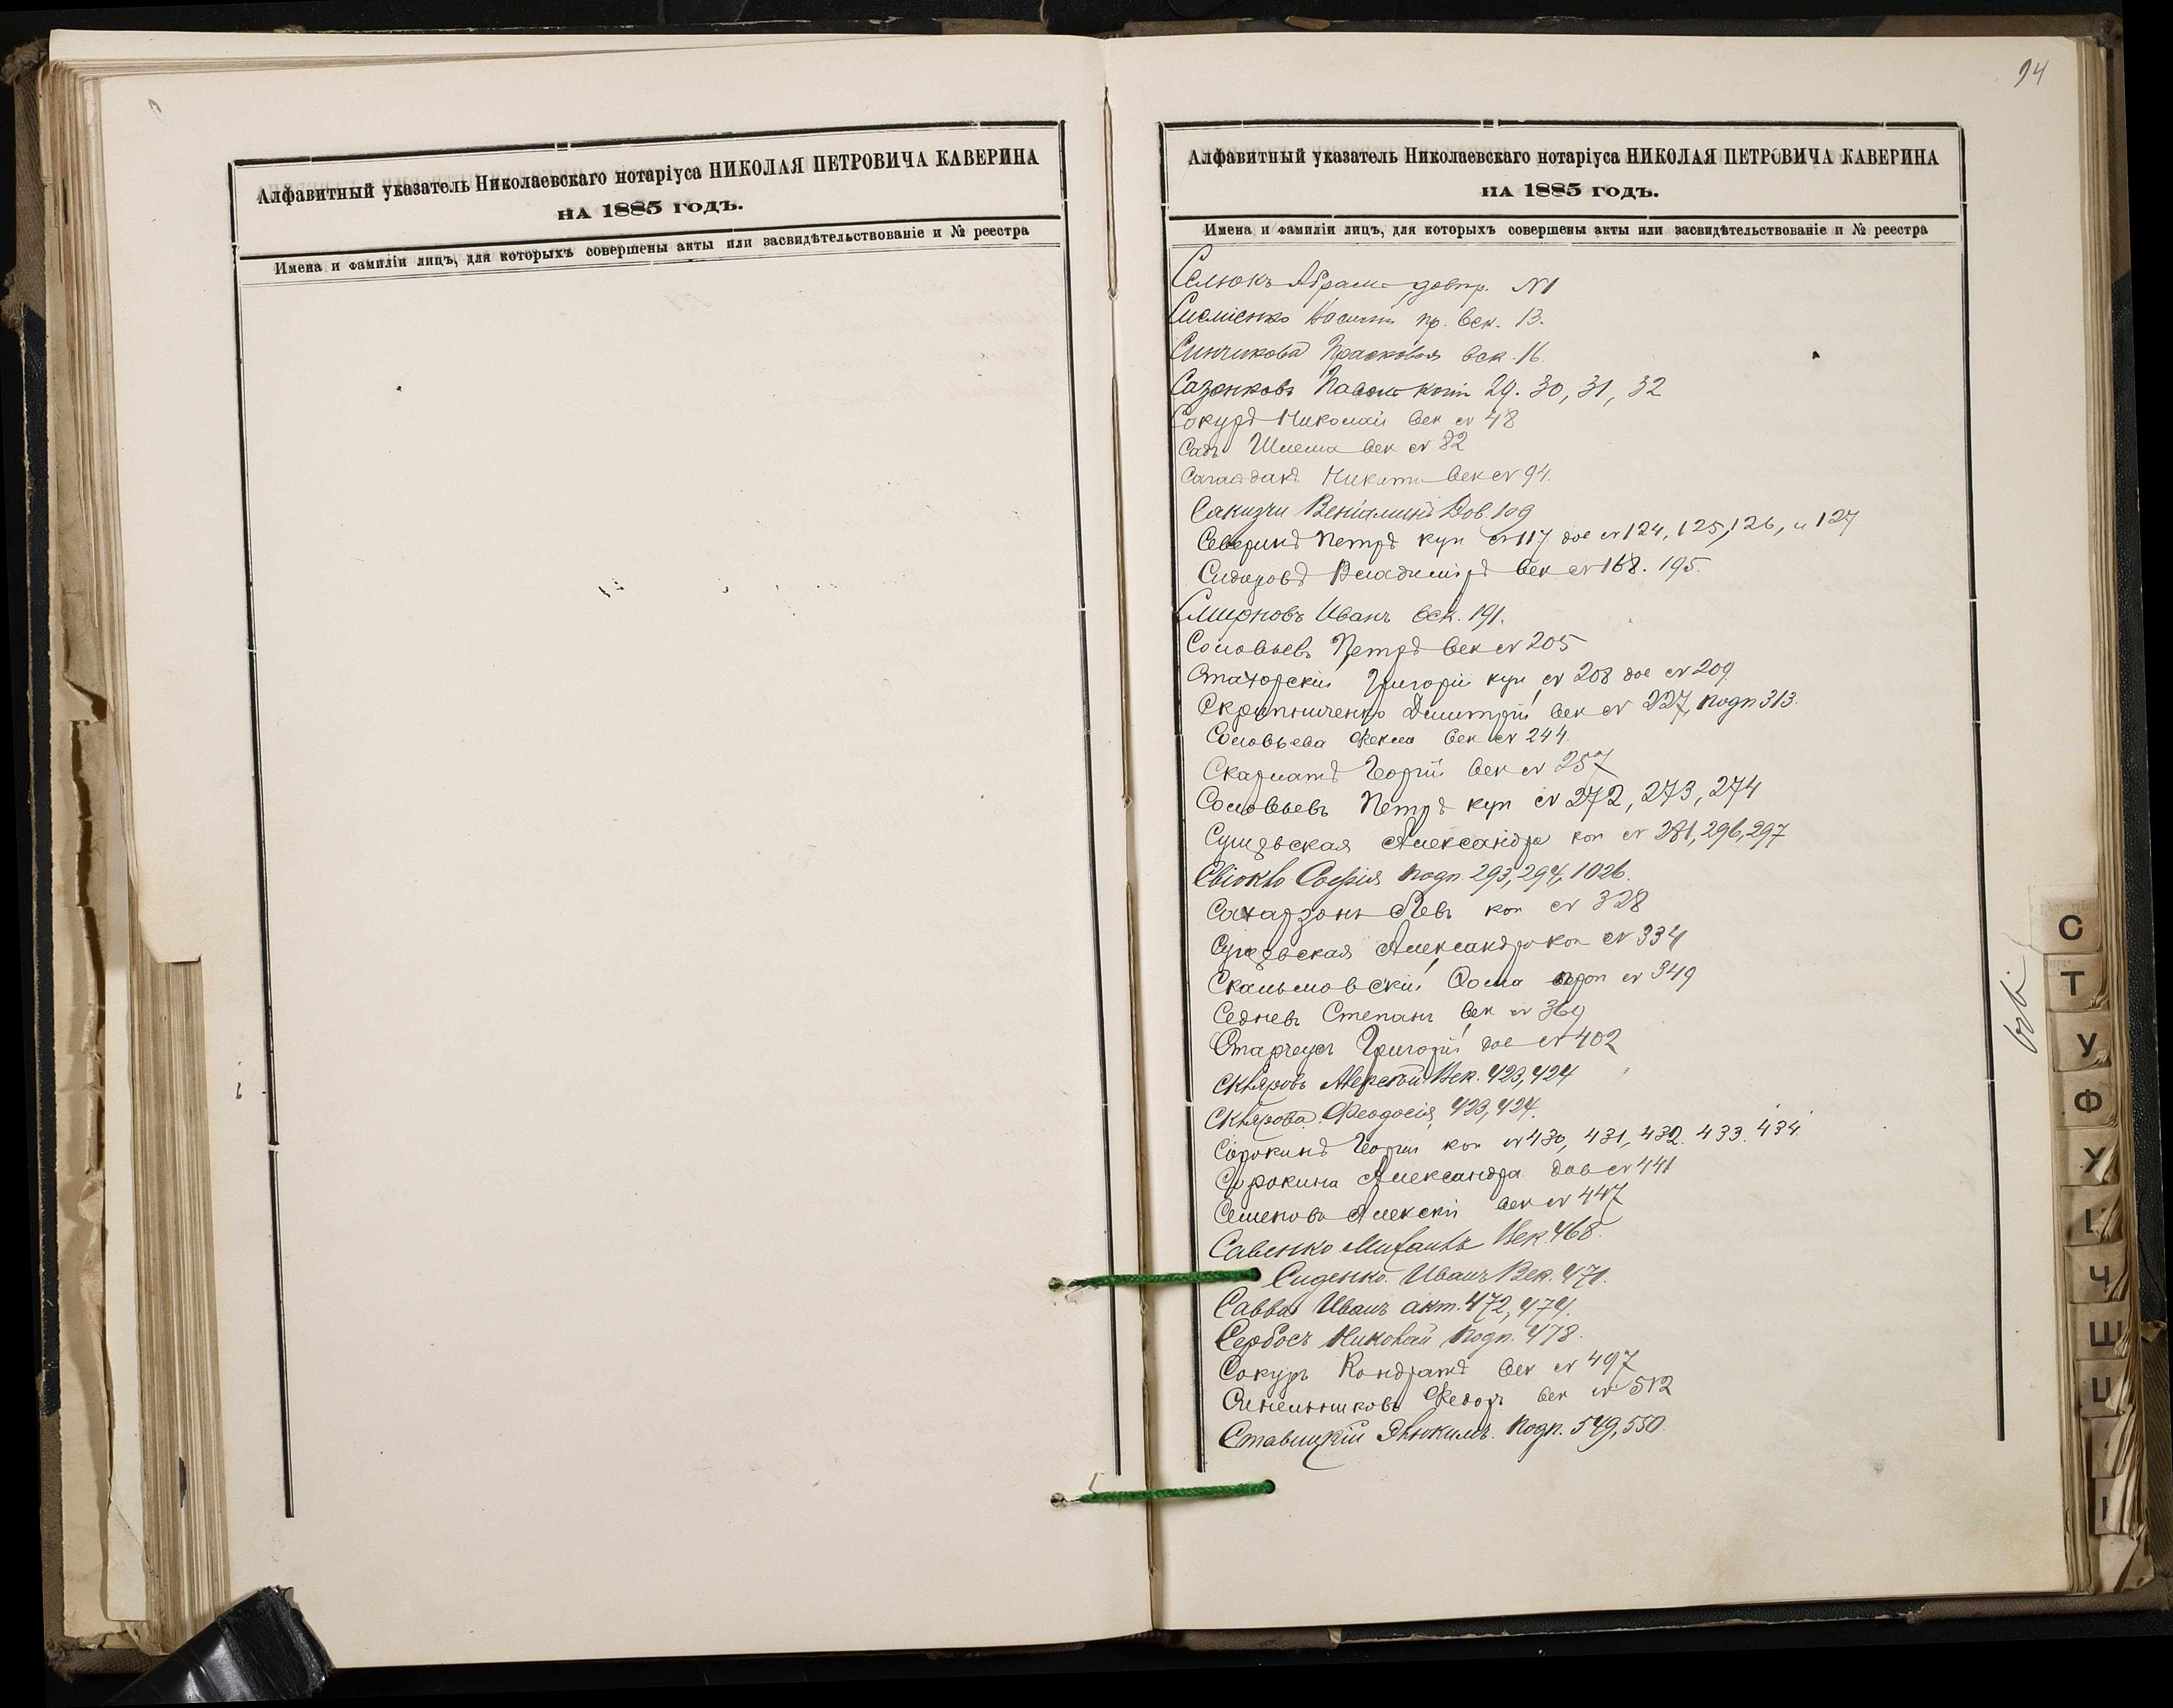 Алфавитный указатель Николаевскаго нотаріуса НИКОЛАЯ ПЕТРОВИЧА КАВЕРИНА
НА 1885 ГОДЪ.
Имена и фамиліи лицъ, для которыхъ совершены акты или засвидѣтельствованіе и № реестра
94
Алфавитный указатель Николаевскаго нотаріуса НИКОЛАЯ ПЕТРОВИЧА КАВЕРИНА
НА 1885 ГОДЪ.
Имена и фамиліи лицъ, для которыхъ совершены акты или засвидѣтельствованіе и № реестра
Селюкъ Абрамъ №1
пр. век. 13.
Прасковья век. 16.
Сазонковъ Павелъ копіи 29. 30, 31, 32
Сокуръ Николай век № 48
Садъ Шлема век № 82
Сагайдакъ Никита век № 94.
Сакизчи Веніаминъ Дов. 109
Северинъ Петръ куп № 117 дов № 124, 125, 126, и 127
Сидоровъ Владиміръ век № 168. 195.
Смирновъ Иванъ век. 191.
Соловьевъ Петръ век № 205
Григорій куп № 208 дов № 209
Скрипниченко Димитрій век № 227, подп 313.
Соловьева Фекла век № 244.
Скарлатъ Георгій век № 257
Соловьевъ Петръ куп № 272, 273, 274
Александра коп № 281, 296, 297
Софія подп. 293, 294, 1026.
Сахарзонъ Левъ коп № 328
Александра коп № 334
Скальмовскій Ѳома № 349
Седневъ Степанъ век № 369
Старчеусъ Григорій дов № 402
Скляровъ Век. 423, 424
Склярова Феодосія, 423, 424.
Сорокинъ Георгій коп № 430, 431, 432. 433. 434.
Сорокина Александра дов № 441
Семеновъ Алексѣй век № 447
Савенко Михаилъ Век. 468.
Сиденко. Иванъ Век. 471.
Савва Иванъ акт. 472, 474.
Сербосъ Николай подп. 478.
Сокуръ Кондратъ век № 497
Синельниковъ Федоръ век № 512
Ставицкій подп. 549, 550.
С
Т
У
Ф
Ч
Ш